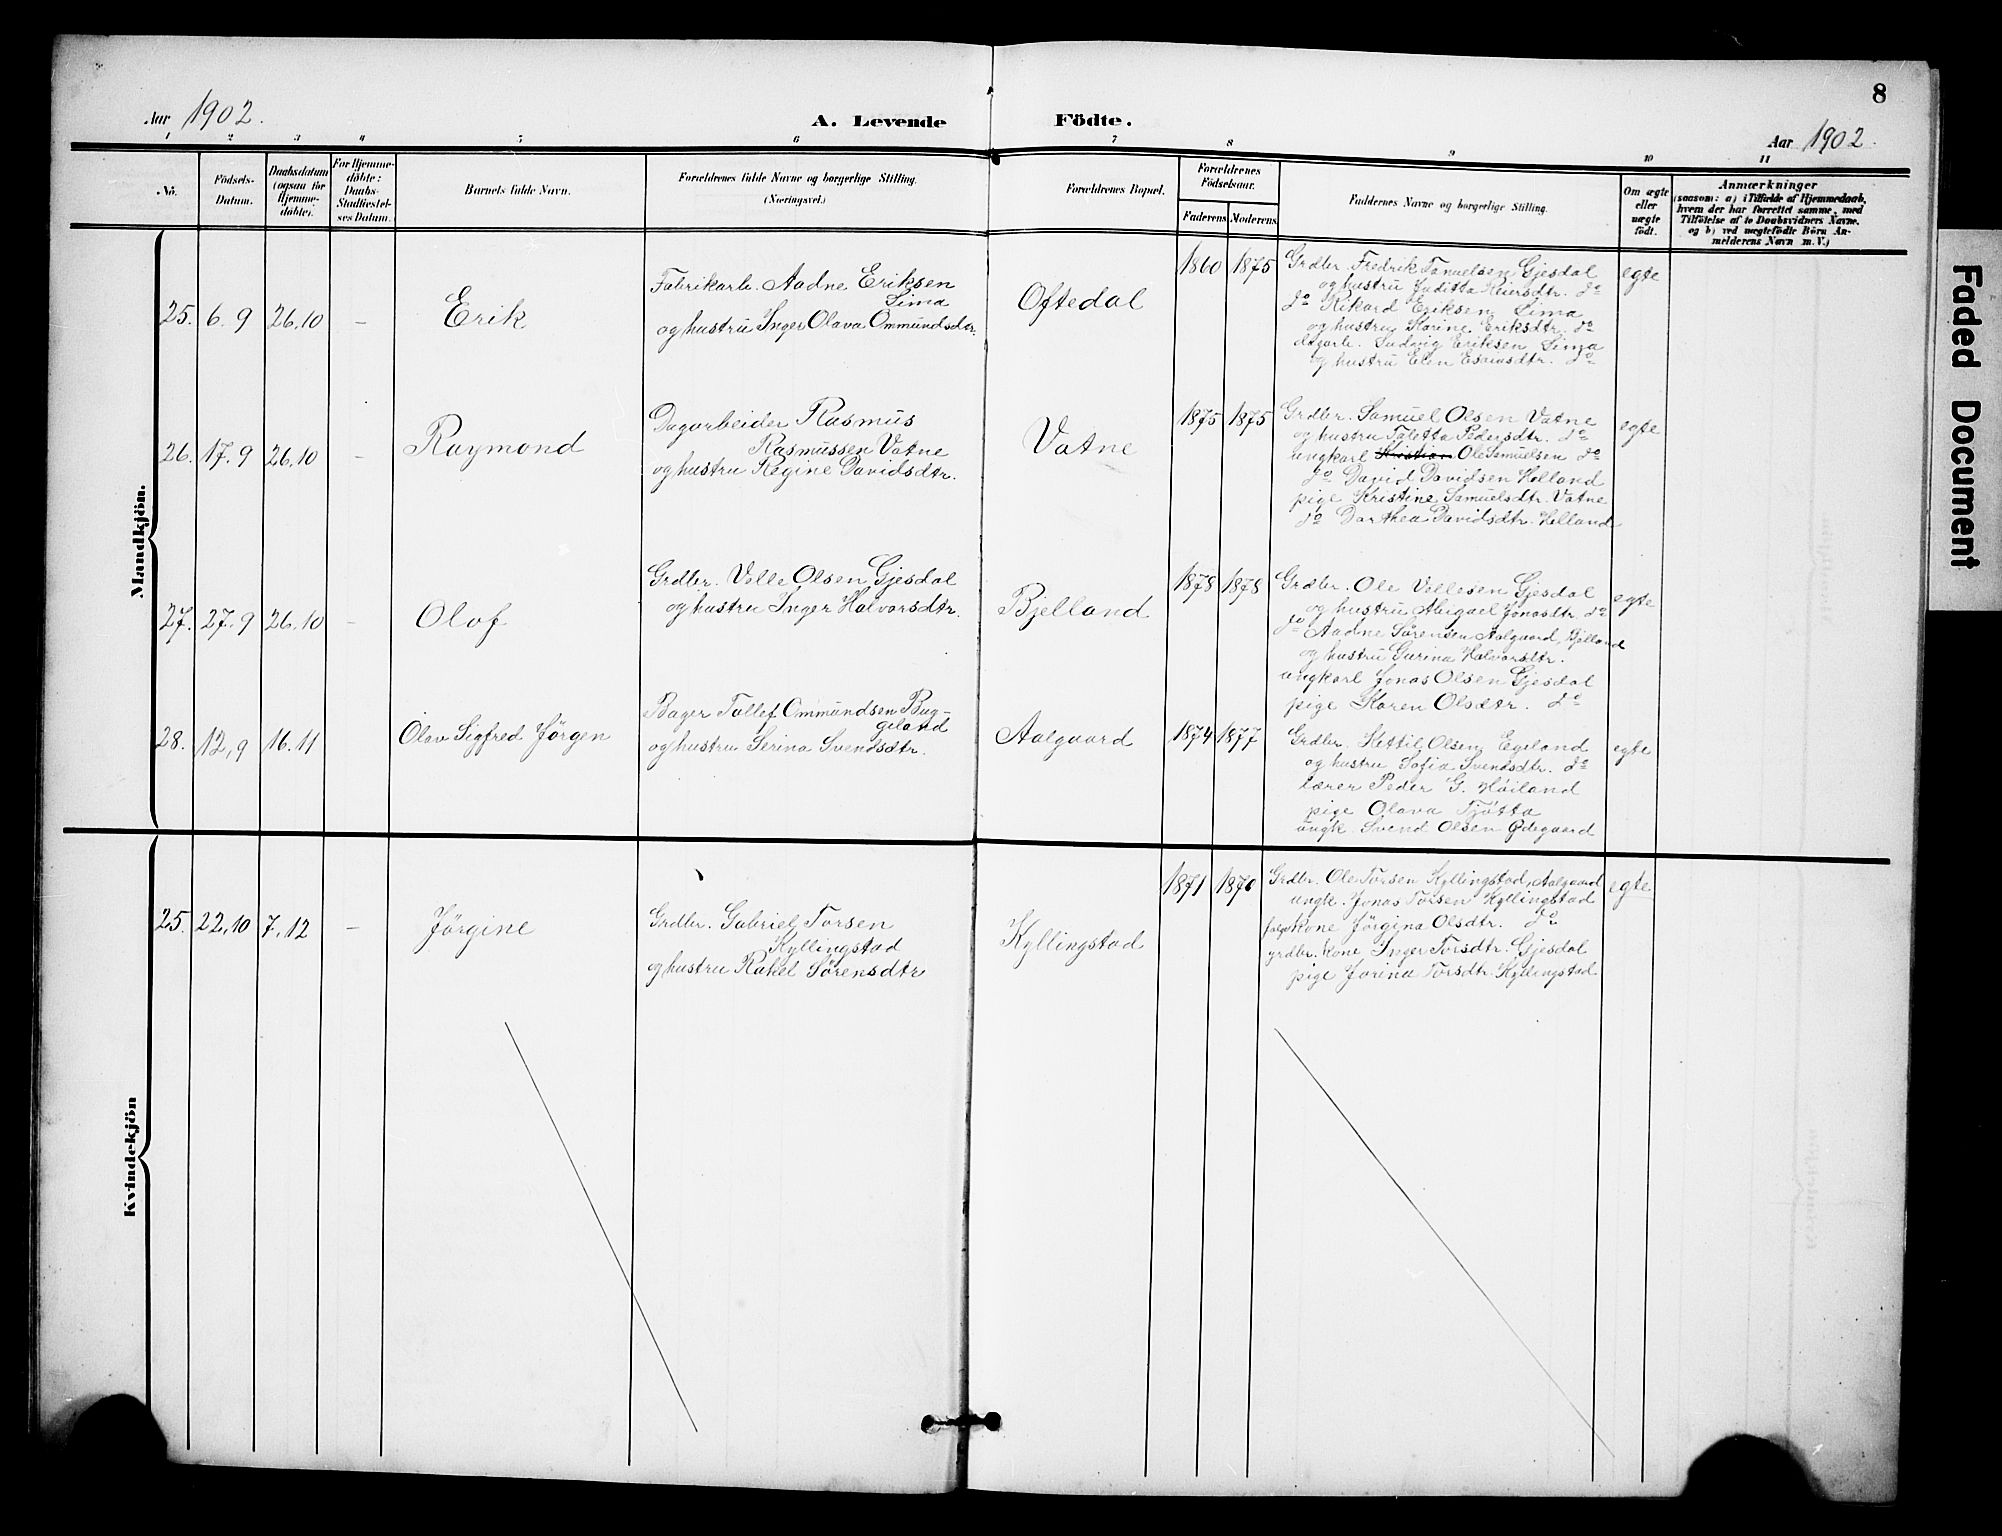 8
Aar 1902.
A. Levende Födte.
Aar 1902.
1 2 3 4 5 6 7 8 9 10 11
No.
Födsels-
Datum.
Daabsdatum
(ogsaa for
Hjemme-
döbte).
For Hjemme-
döbte:
Daabs-
Stadfæstel-
ses Datum.
Barnets fulde Navn.
Forældrenes fulde Navne og borgerlige Stilling.
(Næringsvei.)
Forældrenes Bopæl.
Forældrenes
Födselsaar.
Faderens
Moderens
Faddernes Navne og borgerlige Stilling.
Om ægte
eller
uægte
födt.
Anmærkninger
(saasom: a) i Tilfælde af Hjemmedaab,
hvem der har forrettet samme, med
Tilföielse af to Daabsvidners Navne.
og b) ved uægtefödte Börn An-
melderens Navn m. V.)
Mandkjön.
25. 6. 9 26.10 –
Erik
Fabrikarb. Aadne Eriksen
Lima
og hustru Inger Olava Ommundsdtr.
Oftedal
1860 1875
Grdbr. Fredrik Tanuelsen Gjesdal
og hustru Juditta Reiersdtr. do
do Rikard Eriksen Lima
og hustru Karine Eriksdtr. do
dagarb. Ludvig Eriksen Lima
og hustru Elen Esaiasdtr. do
egte
26. 17. 9 26.10 –
Raymond
Dagarbeider Rasmus
Rasmussen Vatne
og hustru Regine Davidsdtr.
Vatne
1875 1875
Grdbr. Samuel Olsen Vatne
og hustru Taletta Pedersdtr. do
ungkarl Kristian Ole Samuelsen do
do David Davidsen Helland
pige Kristine Samuelsdtr. Vatne
do Dorthea Davidsdtr. Helland
egte
27. 27. 9 26.10 –
Olof
Grdbr. Velle Olsen Gjesdal
og hustru Inger Halvorsdtr.
Bjelland
1878 1878
Grdbr. Ole Vellesen Gjesdal
og hustru Abigael Jonasdtr. do
do Aadne Sørensen Aalgaard, Bjelland
og hustru Gurina Halvorsdtr.
ungkarl Jonas Olsen Gjesdal
pige Karen Olsdtr. do
egte
28. 12, 9 16. 11
Olav Sigfred Jørgen
Bager Tollef Ommundsen Bug-
geland
og hustru Serina Svendsdtr.
Aalgaard
1874 1877
Grdbr. Kettil Olsen Egeland
og hustru Sofia Svendsdtr. do
lærer Peder G. Høiland
pige Olava Tjøtta
ungk. Svend Olsen Ødegaard
egte
Kvindekjön
25. 22, 10 7, 12 –
Jørgine
Grdbr. Gabriel Torsen
Kyllingstad
og hustru Rakel Sørensdtr
Kyllingstad
1871 1870
Grdbr. Ole Torsen Kyllingstad, Aalgaard
ungk. Jonas Torsen Kyllingstad
kone Jørgina Olsdtr. do
grdbr. kone Inger Torsdtr. Gjesdal
pige Jorina Torsdtr. Kyllingstad
egte
Faded Document